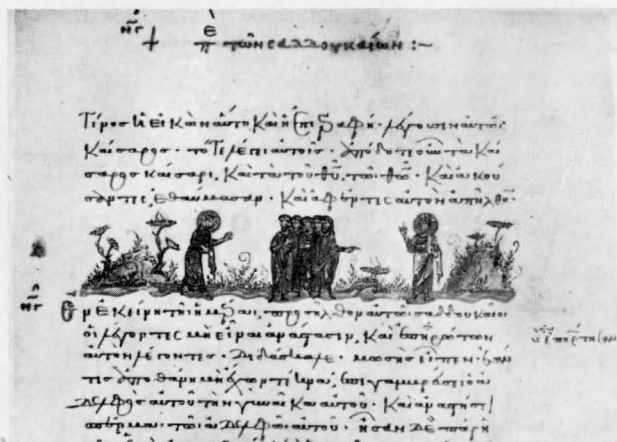 τῶν σαδδουκαίων :~
Τίνος ἡ εἰκὼν αὕτη καὶ ἡ ἐπιγραφή· λέγουσιν αὐτῶ·
Καίσαρος· τότε λέγει αὐτοῖς· ἀπόδοτε οὖν τὰ καί
σαρος καίσαρι, καὶ τὰ τοῦ θῦ, τῶ θῶ· καὶ ἀκού
σαντες, ἐθαύμασαν· καὶ ἀφέντες αὐτὸν ἀπῆλθον·
Ἐν ἐκείνη τῆ ἡμέραι, προσῆλθον αὐτῶ σαδδουκαῖοι
οἱ λέγοντες μὴ εἶναι ἀνάστασιν, καὶ ἐπηρώτων
αὐτὸν λέγοντες· διδάσκαλε· μωσῆς εἶπεν· ἐάν
τις ἀποθάνη μὴ ἔχων τέκνα, ἐπιγαμβρεύσει ὁ ἀ
δελφὸς αὐτοῦ τὴν γυναῖκα αὐτοῦ· καὶ ἀναστήσει
σπέρμα τῶ ἀδελφῶ αὐτοῦ· ἦσαν δὲ παρ' ἡ